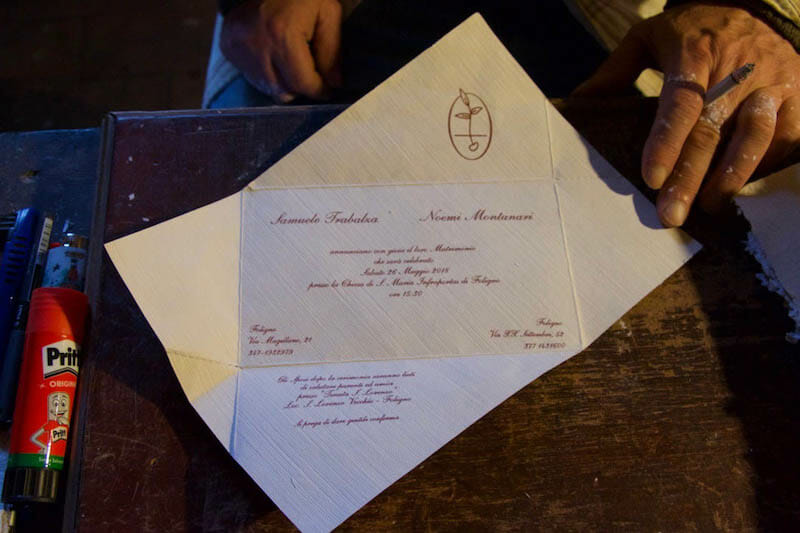 Samuele Trabalza Noemi Montanari
annunciano con gioia il loro Matrimonio
che sarà celebrato
Sabato 26 Maggio 2018
presso la Chiesa di S. Maria Infraportas di Foligno
ore 15:30
Foligno
Via Magellano, 21
347-1922979
Foligno
Via XX Settembre, 52
377 1431600
Gli Sposi dopo la cerimonia saranno lieti
di salutare parenti ed amici
presso "Tenuta S. Lorenzo"
Loc. S. Lorenzo Vecchio - Foligno
Si prega di dare gentile conferma
Pritt
ORIGINAL
Pritt